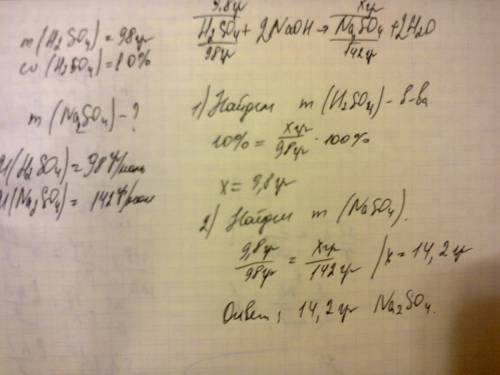 m(H₂SO₄) = 98 гр
ω(H₂SO₄) = 10%
m(Na₂SO₄) - ?
M(H₂SO₄) = 98 г/моль
M(Na₂SO₄) = 142 г/моль
9,8 гр xгр
H₂SO₄ + 2NaOH → Na₂SO₄ + 2H₂O
98гр 142гр
1) Найдем m(H₂SO₄) - в-ва
10% = xгр/98гр · 100%
x = 9,8 гр
2) Найдем m(NaSO₄).
9,8гр/98гр = xгр/142гр / x = 14,2 гр
Ответ: 14,2 гр Na₂SO₄.